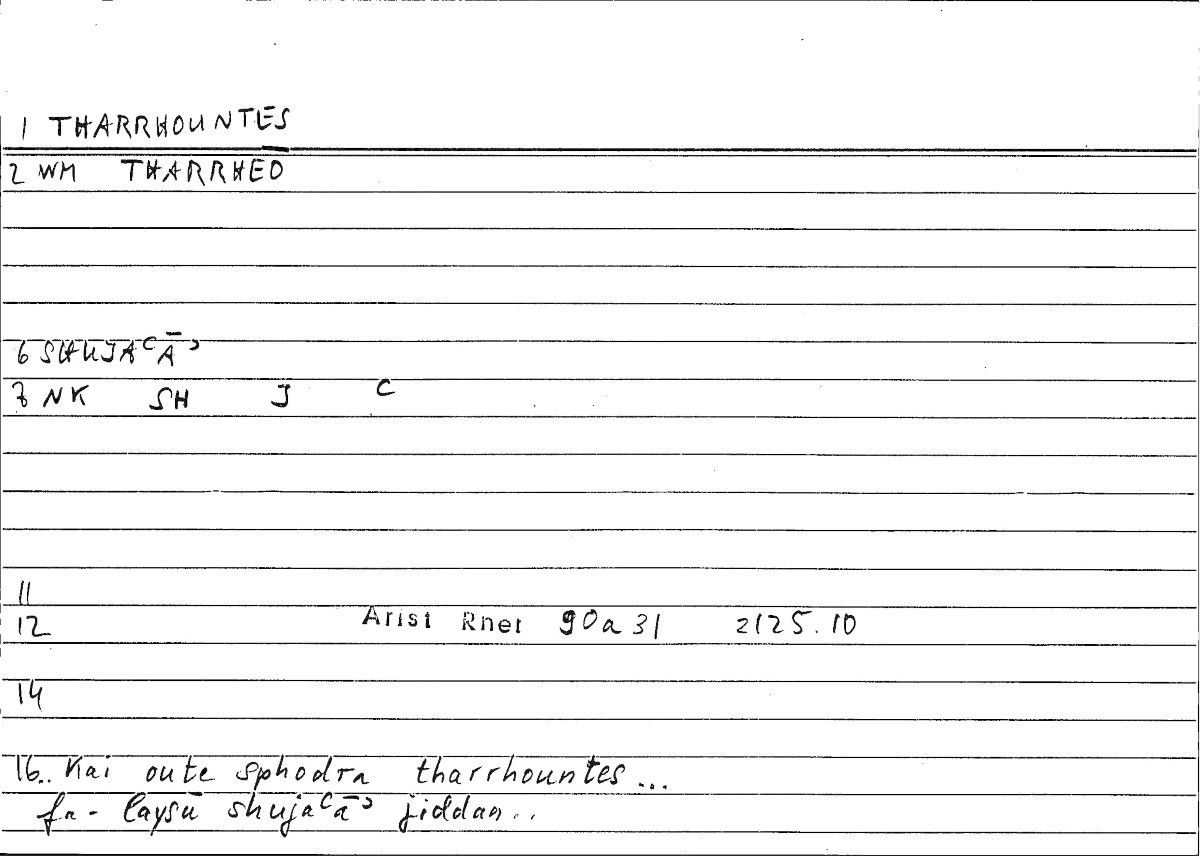 1 THARRHOUNTES
2 WM THARRHEO
6 SHUJAʿĀʾ
7 NK SH J ʿ
11
12 Arist Rhet 90a31 2125.10
14
16.. Kai oute sphodra tharrhountes...
fa- laysū shujaʿāʾ jiddan..